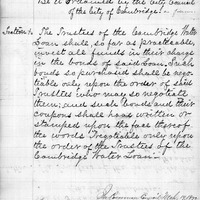 Be it Ordained by the City Council
of the City of Cambridge
Section 1. The Trustees of the Cambridge Water
Loan shall, so far as practicable,
invest all funds in their charge
in the bonds of said Loan. Such
bonds so purchased shall be nego-
tiable only upon the order of said
Trustees who may so negotiate
them; and such bonds and their
coupons shall have written or
stamped upon the face thereof
the words "Negotiable only upon
the order of the Trustees of the
Cambridge Water Loan".